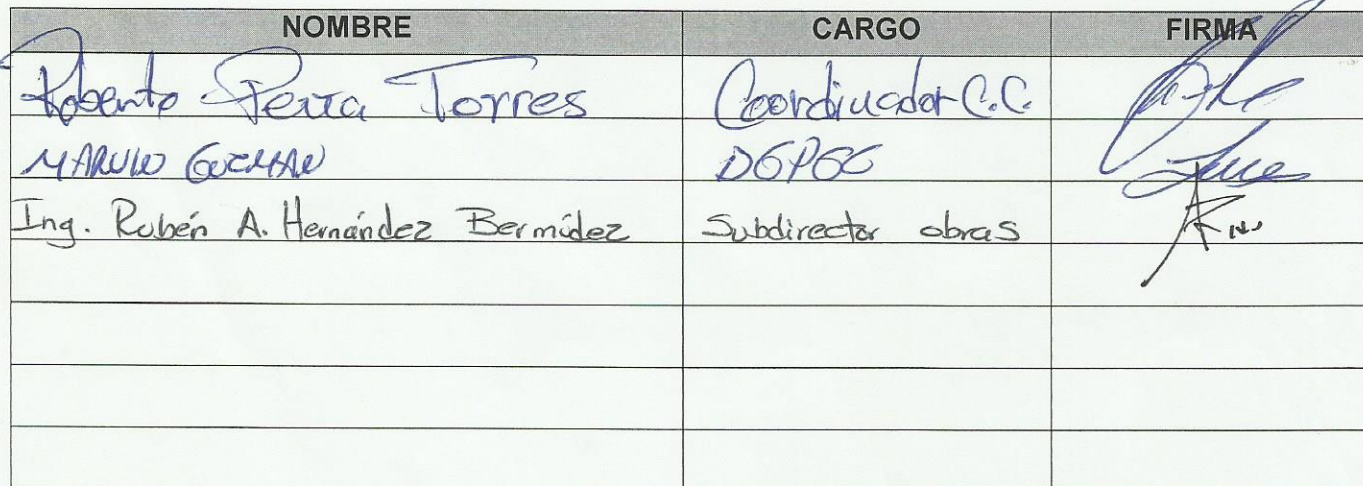 NOMBRE CARGO FIRMA
Roberto Torres Coordinador C.C.
MARVIN GUZMAN
Ing. Rubén A. Hernández Bermúdez Subdirector obras